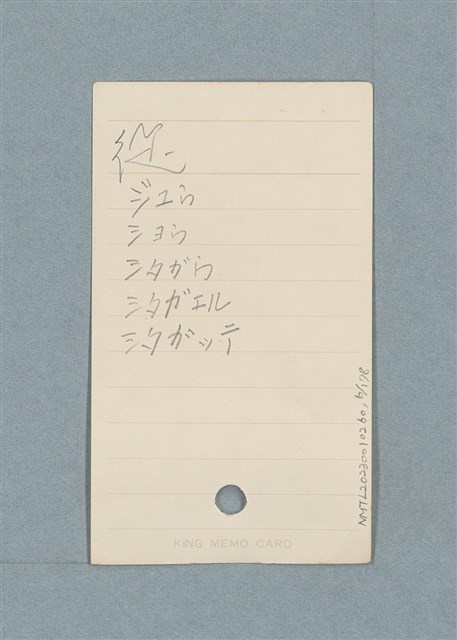 従
ジユウ
ショウ
シタガウ
シタガエル
シタガッテ
NMTL20230010260, 6/178
KING MEMO CARD